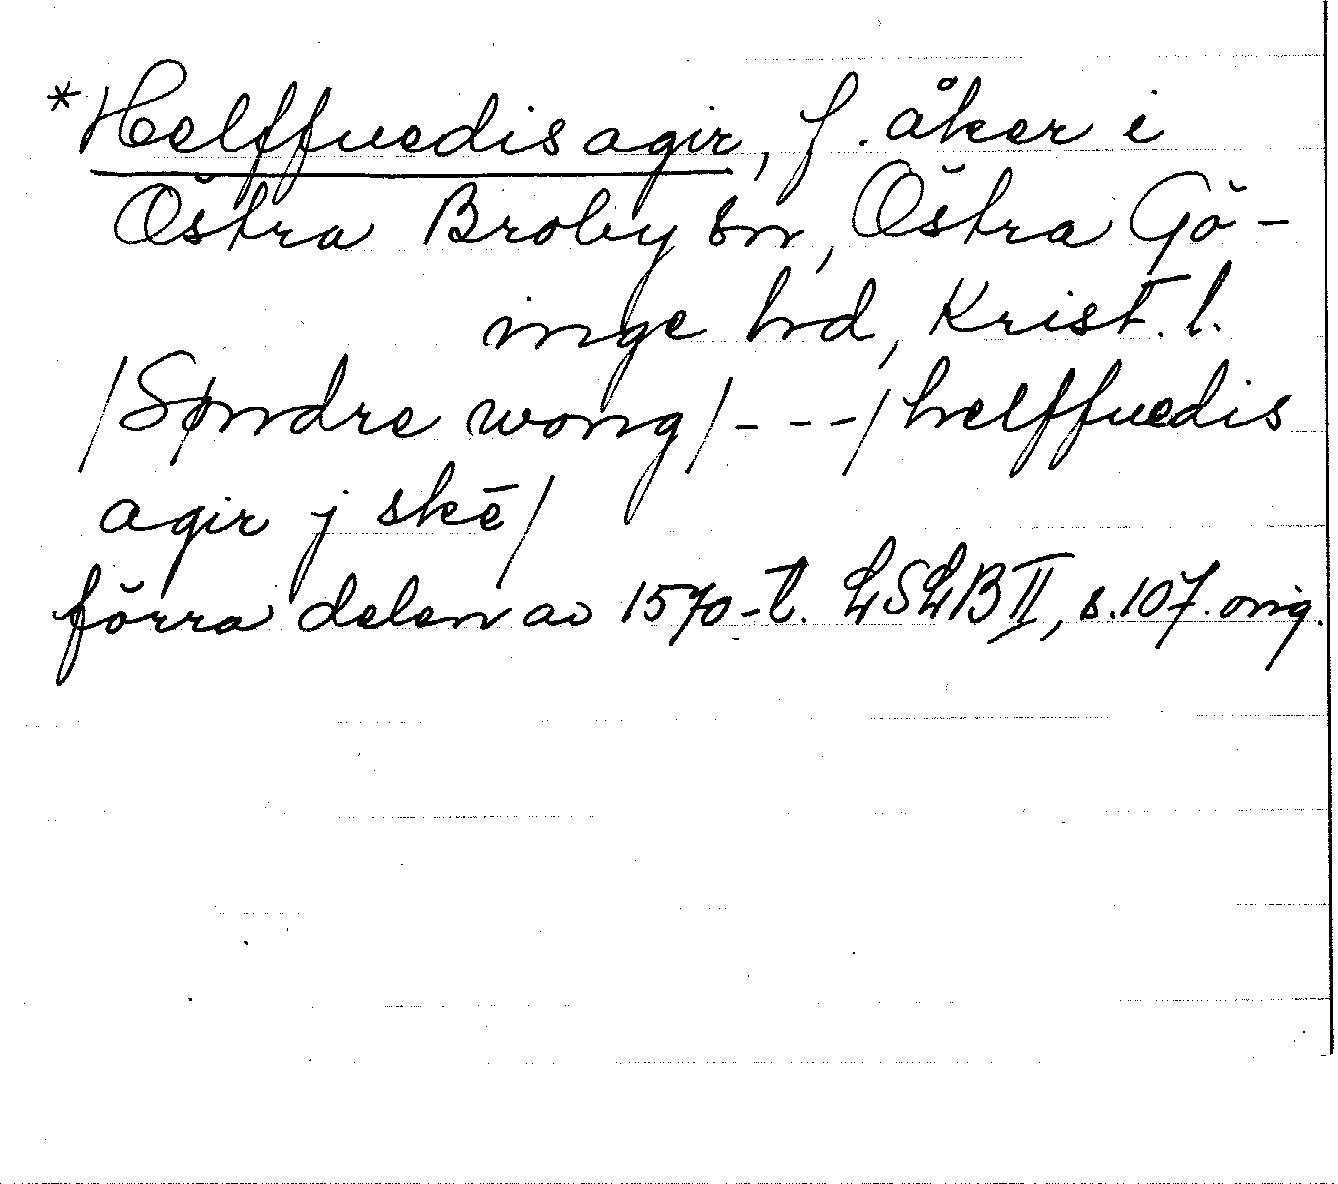 *Helffuedis agir, f. åker i
Östra Broby sn, Östra Gö-
inge hd, Krist. l.
/Søndre wong/---/helffuedis
agir j skē/
förra delen av 1570-t. LSLB II, s. 107. orig.